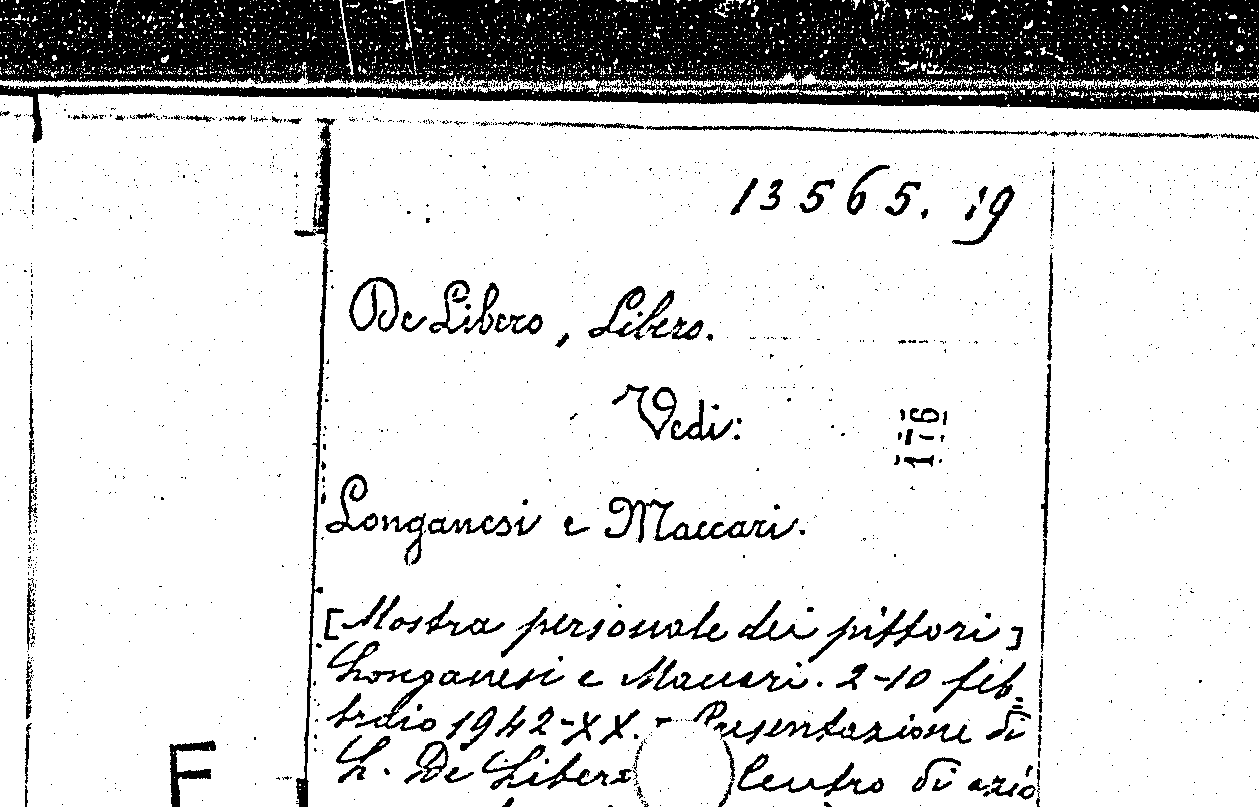 13565.19
De Libero, Libero.
Vedi:
176
Longanesi e Maccari.
[Mostra personale dei pittori]
Longanesi e Maccari. 2-10 feb=
braio 1942-XX. - Presentazione di
L. De Libero Centro di azio
F